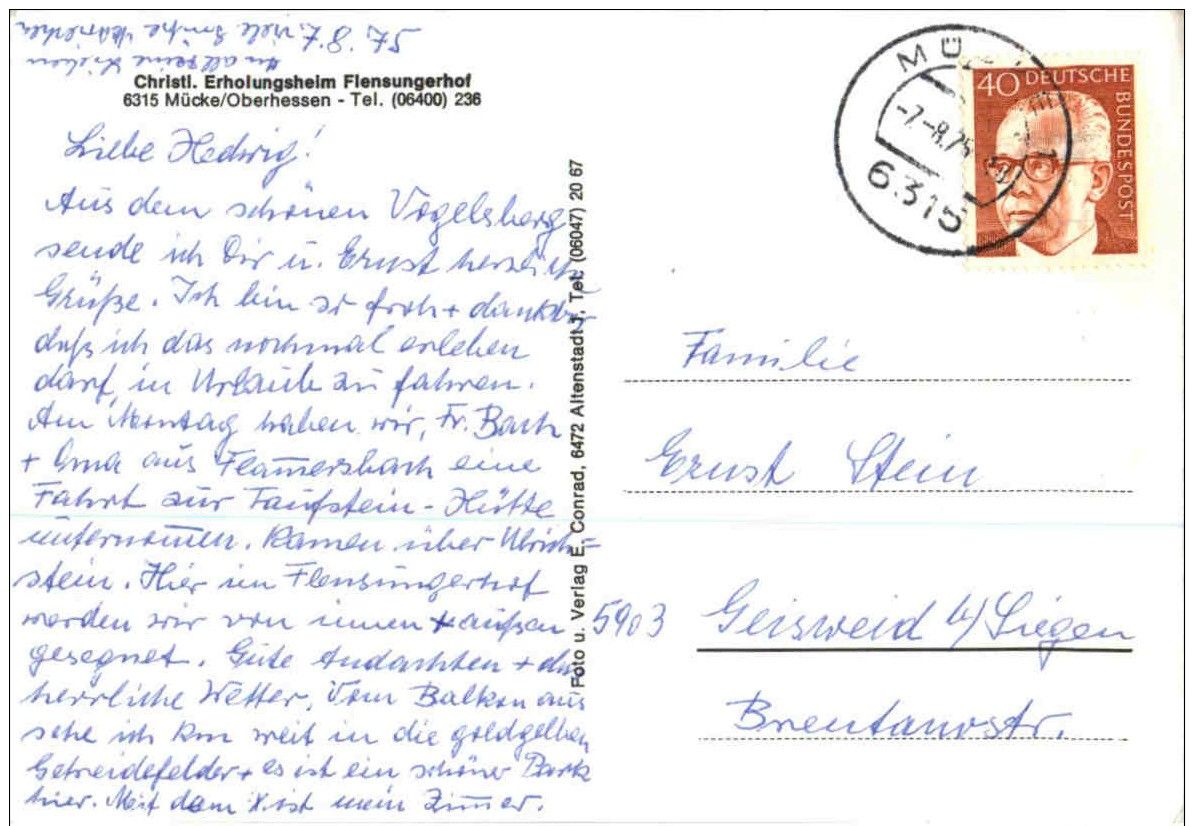 St. 8,7. viele Grüße
An all Deine Lieben
Christl. Erholungsheim Flensungerhof
6315 Mücke/Oberhessen - Tel. (06400) 236
Liebe Hedwig!
Aus dem schönen Vogelsberg
sende ich Dir u. Ernst herzliche
Grüße. Ich bin so froh + dankbar
daß ich das nochmal erleben
darf, in Urlaub zu fahren.
Am Montag haben wir, Fr. Bach
+ Oma aus Flam̅ersbach eine
Fahrt zur Taufstein-Hütte
unternom̅en. Kamen über Ulrich=
stein. Hier im Flensungerhof
werden wir von innen + außen
gesegnet. Gute Andachten + das
herrliche Wetter. Vom Balkon aus
sehe ich km weit in die goldgelben
Getreidefelder + es ist ein schöner Park
hier. Mit dem X ist mein Zim̅er.
Foto u. Verlag E. Conrad, 6472 Altenstadt 1, Tel. (06047) 20 67
MÜCKE 1
-7.-8.75
6315
40 DEUTSCHE
BUNDESPOST
Familie
Ernst Stein
5903 Geisweid b/Siegen
Brentanostr.